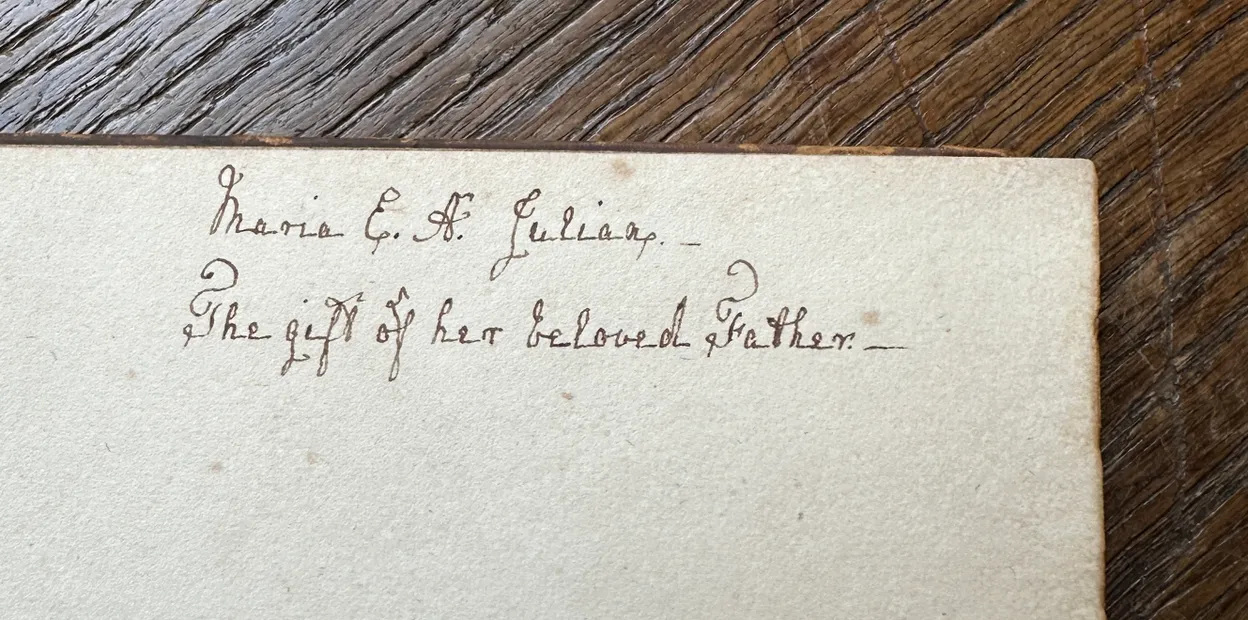 Maria E. A. Julian. _
The gift of her beloved Father. _